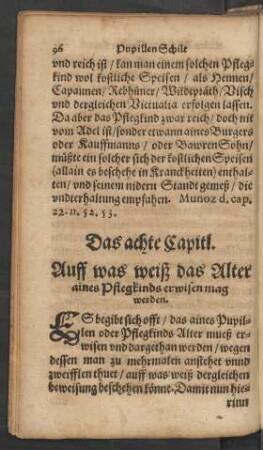 96 Pupillen Schilt
vnd reich ist / kan man einem solchen Pfleg⸗
kind wol kostliche Speisen / als Hennen /
Capaunen / Rebhüner / Wildepräth / Visch
vnd dergleichen Victualia erfolgen lassen.
Da aber das Pflegkind zwar reich / doch nit
vom Adel ist / sonder etwann aines Burgers
oder Kauffmanns / oder BawrenSohn /
müßte ein solcher sich der kostlichen Speisen
(allain es beschehe in Kranckheiten) enthal⸗
ten / vnd seinem nidern Standt gemeß / die
vnderhaltung empfahen. Munoz d. cap.
22. n. 52. 53.
Das achte Capitl.
Auff was weiß das Alter
aines Pflegkinds erwisen mag
werden.
ES begibt sich offt / das aines Pupil⸗
len oder Pflegkinds Alter mueß er⸗
wisen vnd dargethan werden / wegen
dessen man zu mehrmalen anstehet vnnd
zweifflen thuet / auff was weiß dergleichen
beweisung beschehen könne. Damit nun hie⸗
rinn